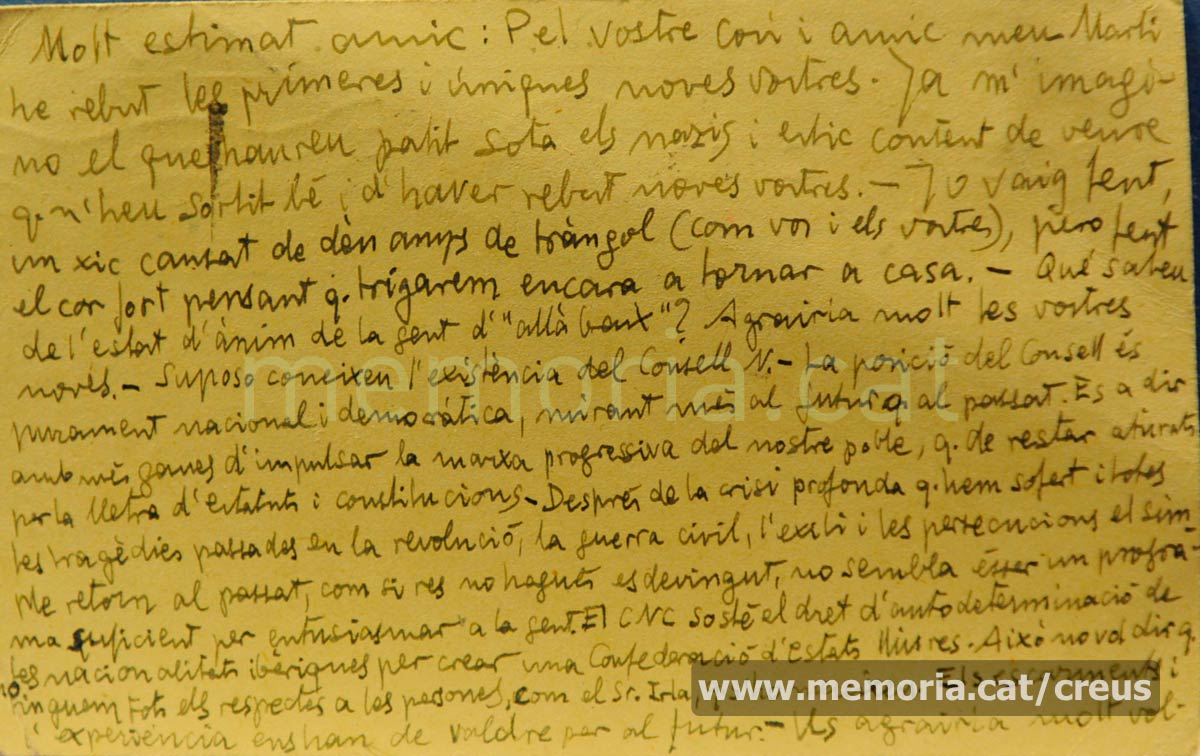 Molt estimat amic: Pel vostre cosí i amic meu Martí
he rebut les primeres i úniques noves vostres. Ja m'imagi-
no el que haureu patit sota els nazis i estic content de veure
q. n'heu sortit bé i d'haver rebut noves vostres. — Jo vaig fent,
un xic cansat de deu anys de tràngol (com vos i els vostres), però fent
el cor fort pensant q. trigarem encara a tornar a casa. — Què sabeu
de l'estat d'ànim de la gent d'"allà baix"? Agrairia molt les vostres
noves. — Suposo coneixeu l'existència del Consell N. — La posició del Consell és
purament nacional i democràtica, mirant més al futur q. al passat. És a dir
amb més ganes d'impulsar la marxa progressiva del nostre poble, q. de restar aturats
per la lletra d'estatuts i constitucions — Després de la crisi profonda q. hem sofert i totes
les tragèdies passades en la revolució, la guerra civil, l'exili i les persecucions el sim-
ple retorn al passat, com si res no hagués esdevingut, no sembla ésser un progra-
ma suficient per entusiasmar a la gent. El CNC sosté el dret d'autodeterminació de
les nacionalitats ibèriques per crear una Confederació d'Estats lliures. Això no vol dir q.
no tinguem tots els respectes a les persones, com el Sr. Irla, Els escarments i
l'experiència ens han de valdre per al futur. — Us agrairia molt vol-
memoria.cat
www.memoria.cat/creus